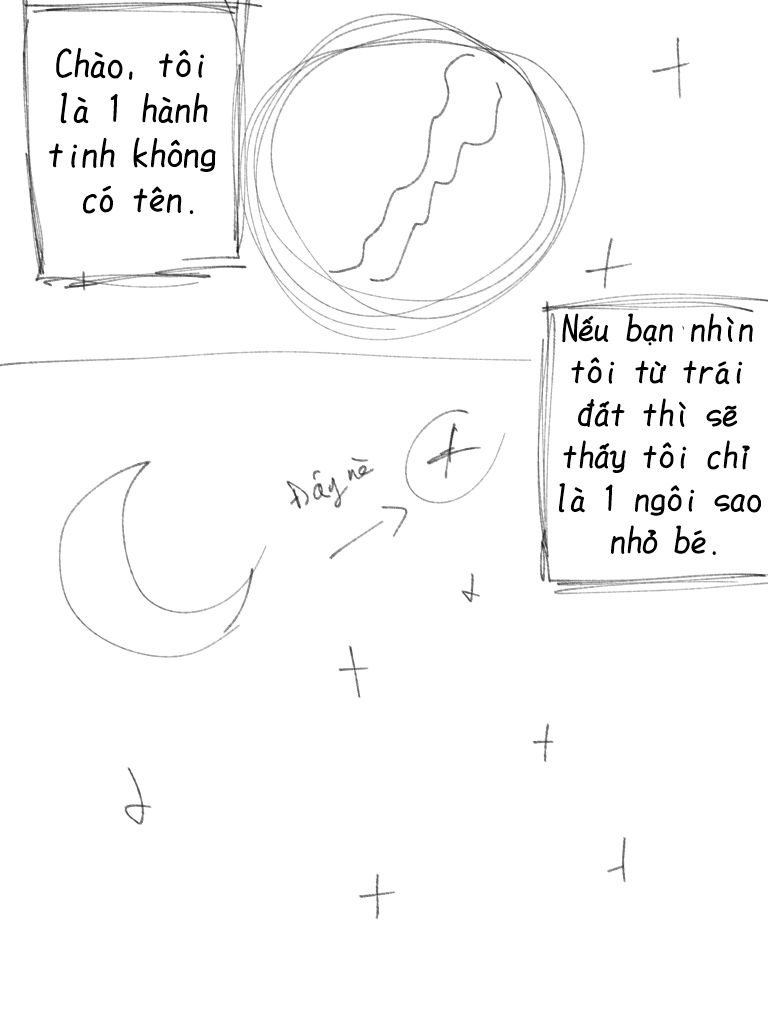 Chào, tôi
là 1 hành
tinh không
có tên.
Nếu bạn nhìn
tôi từ trái
đất thì sẽ
thấy tôi chỉ
là 1 ngôi sao
nhỏ bé.
Đây nè